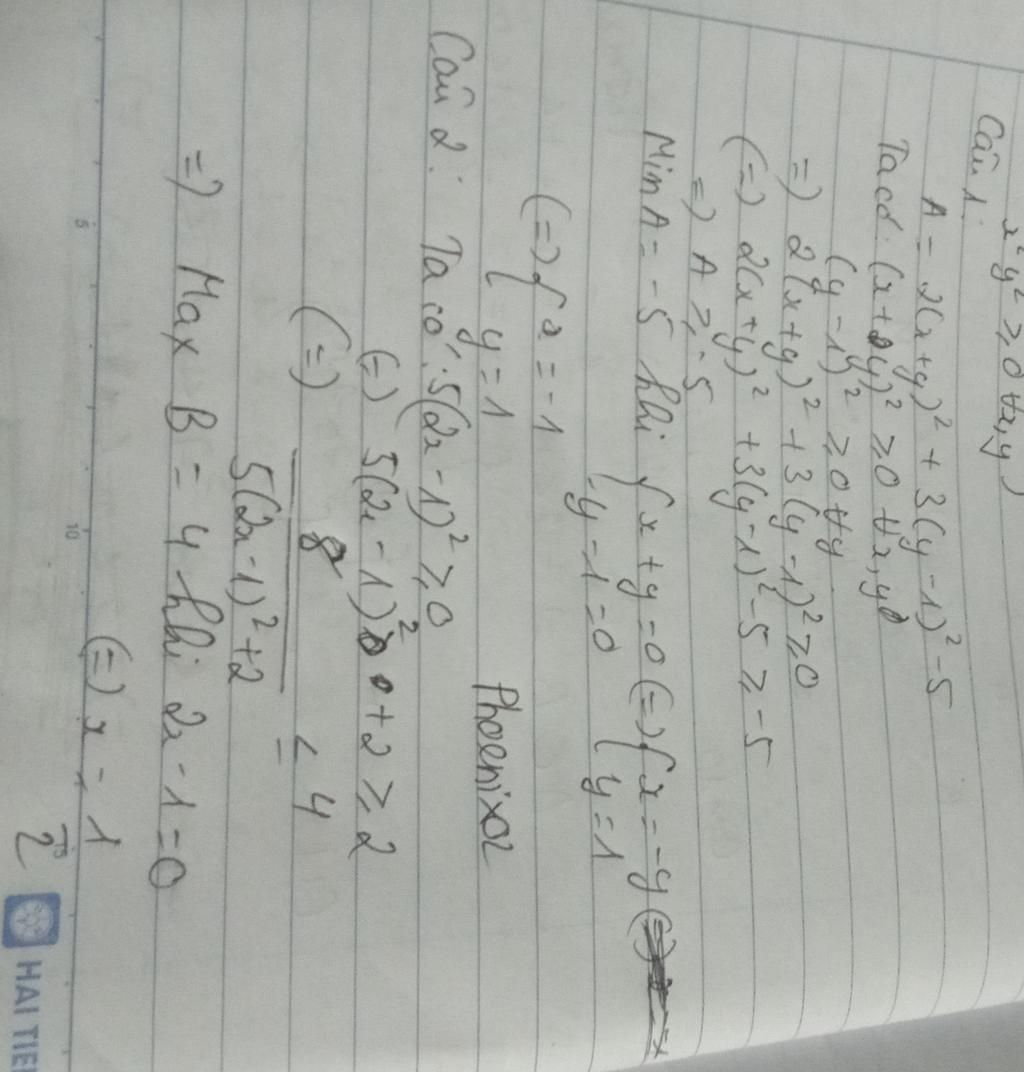 x²y² ≥ 0 ∀x,y)
Câu 1:
A = 2(x+y)² + 3(y-1)² - 5
Ta có: (x+y)² ≥ 0 ∀x,y
(y-1)² ≥ 0 ∀y
=) 2(x+y)² + 3(y-1)² ≥ 0
(=) 2(x+y)² + 3(y-1)² - 5 ≥ -5
=) A ≥ -5
Min A = -5 khi { x+y=0 (=) { x=-y
y-1=0 { y=1
(=) { x=-1
{ y=1
Phoenix02
Câu 2: Ta có: 5(2x-1)² ≥ 0
(=) 5(2x-1)² + 2 ≥ 2
(=) 8 ≤ 4
5(2x-1)²+2
=) Max B = 4 khi 2x-1=0
(=) x = 1
2
5 10 15
HAI TIE